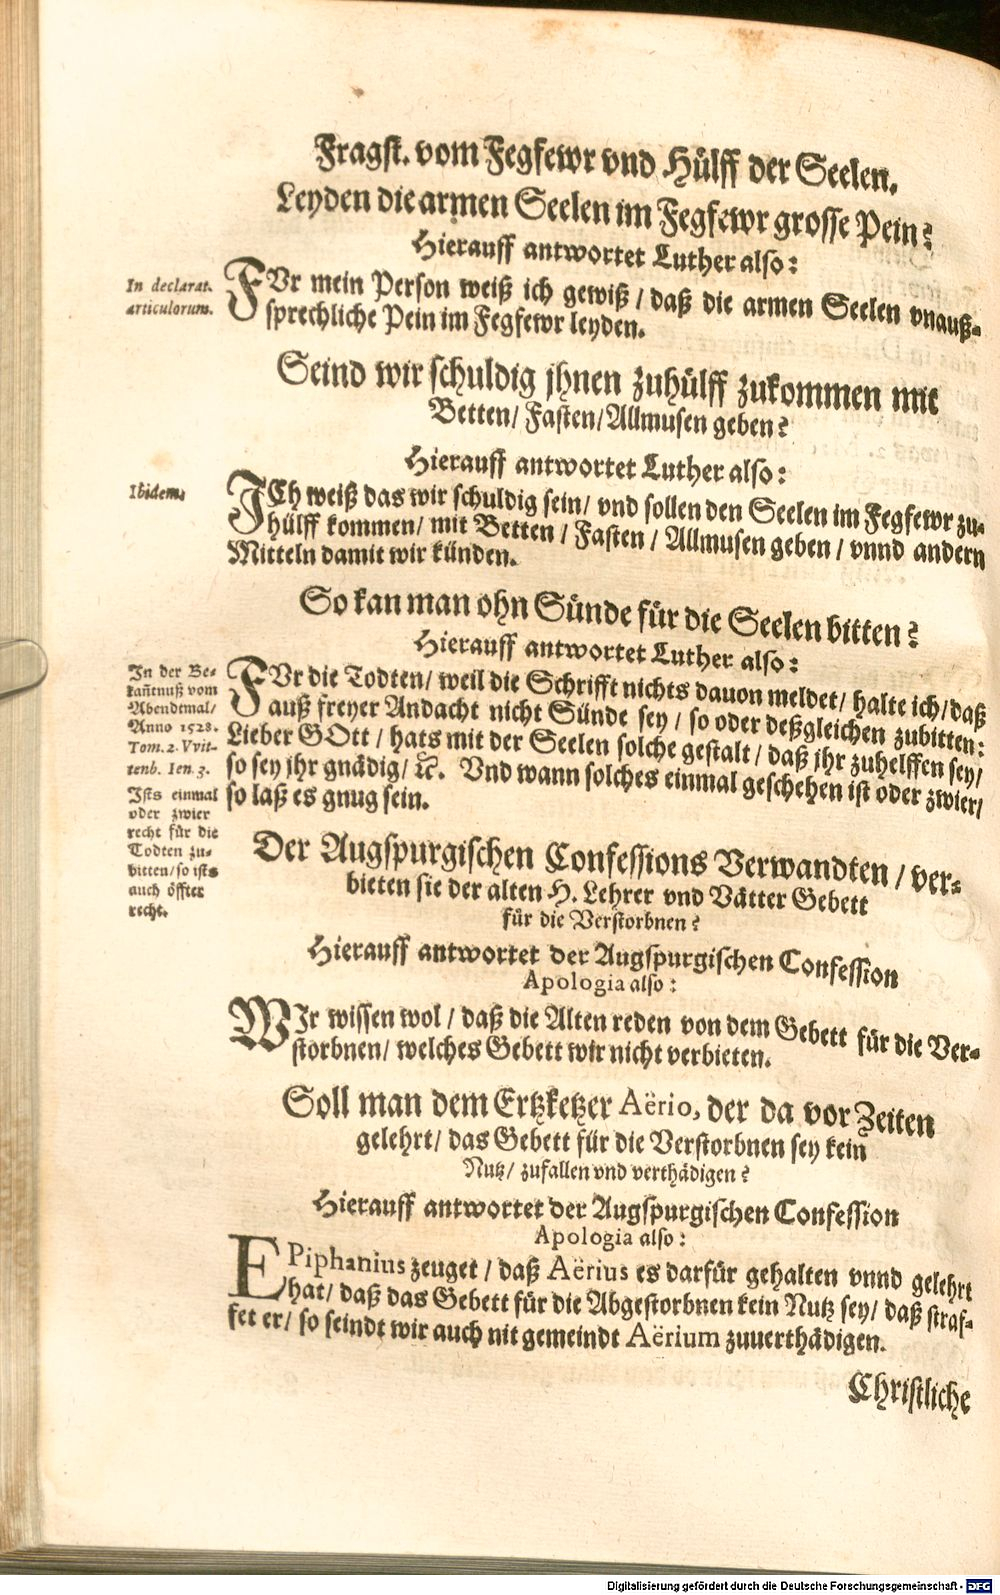 Fragst. vom Fegfewr vnd Hülff der Seelen.
Leyden die armen Seelen im Fegfewr grosse Pein?
Hierauff antwortet Luther also:
In declarat.
articulorum.
FVr mein Person weiß ich gewiß / daß die armen Seelen vnauß-
sprechliche Pein im Fegfewr leyden.
Seind wir schuldig jhnen zuhülff zukommen mit
Betten/ Fasten/ Allmusen geben?
Hierauff antwortet Luther also:
Ibidem.
ICh weiß das wir schuldig sein/ vnd sollen den Seelen im Fegfewr zu-
hülff kommen/ mit Betten / Fasten / Allmusen geben / vnnd andern
Mitteln damit wir künden.
So kan man ohn Sünde für die Seelen bitten?
Hierauff antwortet Luther also:
In der Be-
kañtnuß vom
Abendtmal/
Anno 1528.
Tom. 2. Vvit-
tenb. Ien. 3.
Ists einmal
oder zwier
recht für die
Todten zu-
bitten/ so ists
auch öffter
recht.
FVr die Todten/ weil die Schrifft nichts dauon meldet/ halte ich/ daß
auß freyer Andacht nicht Sünde sey / so oder deßgleichen zubitten:
Lieber GOtt / hats mit der Seelen solche gestalt / daß jhr zuhelffen sey/
so sey jhr gnädig/ ꝛc. Vnd wann solches einmal geschehen ist oder zwier/
so laß es gnug sein.
Der Augspurgischen Confessions Verwandten / ver-
bieten sie der alten H. Lehrer vnd Vätter Gebett
für die Verstorbnen?
Hierauff antwortet der Augspurgischen Confession
Apologia also:
WIr wissen wol / daß die Alten reden von dem Gebett für die Ver-
storbnen/ welches Gebett wir nicht verbieten.
Soll man dem Ertzketzer Aërio, der da vor Zeiten
gelehrt/ das Gebett für die Verstorbnen sey kein
Nutz/ zufallen vnd verthädigen?
Hierauff antwortet der Augspurgischen Confession
Apologia also:
EPiphanius zeuget / daß Aërius es darfür gehalten vnnd gelehrt
hat/ daß das Gebett für die Abgestorbnen kein Nutz sey/ daß straf-
fet er/ so seindt wir auch nit gemeindt Aërium zuuerthädigen.
Christliche
Digitalisierung gefördert durch die Deutsche Forschungsgemeinschaft - DFG